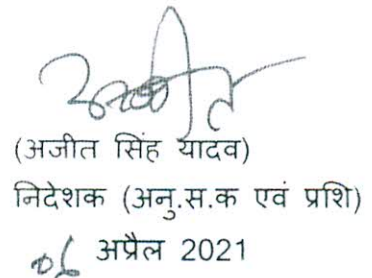 अजीत
(अजीत सिंह यादव)
निदेशक (अनु.स.क एवं प्रशि)
06 अप्रैल 2021